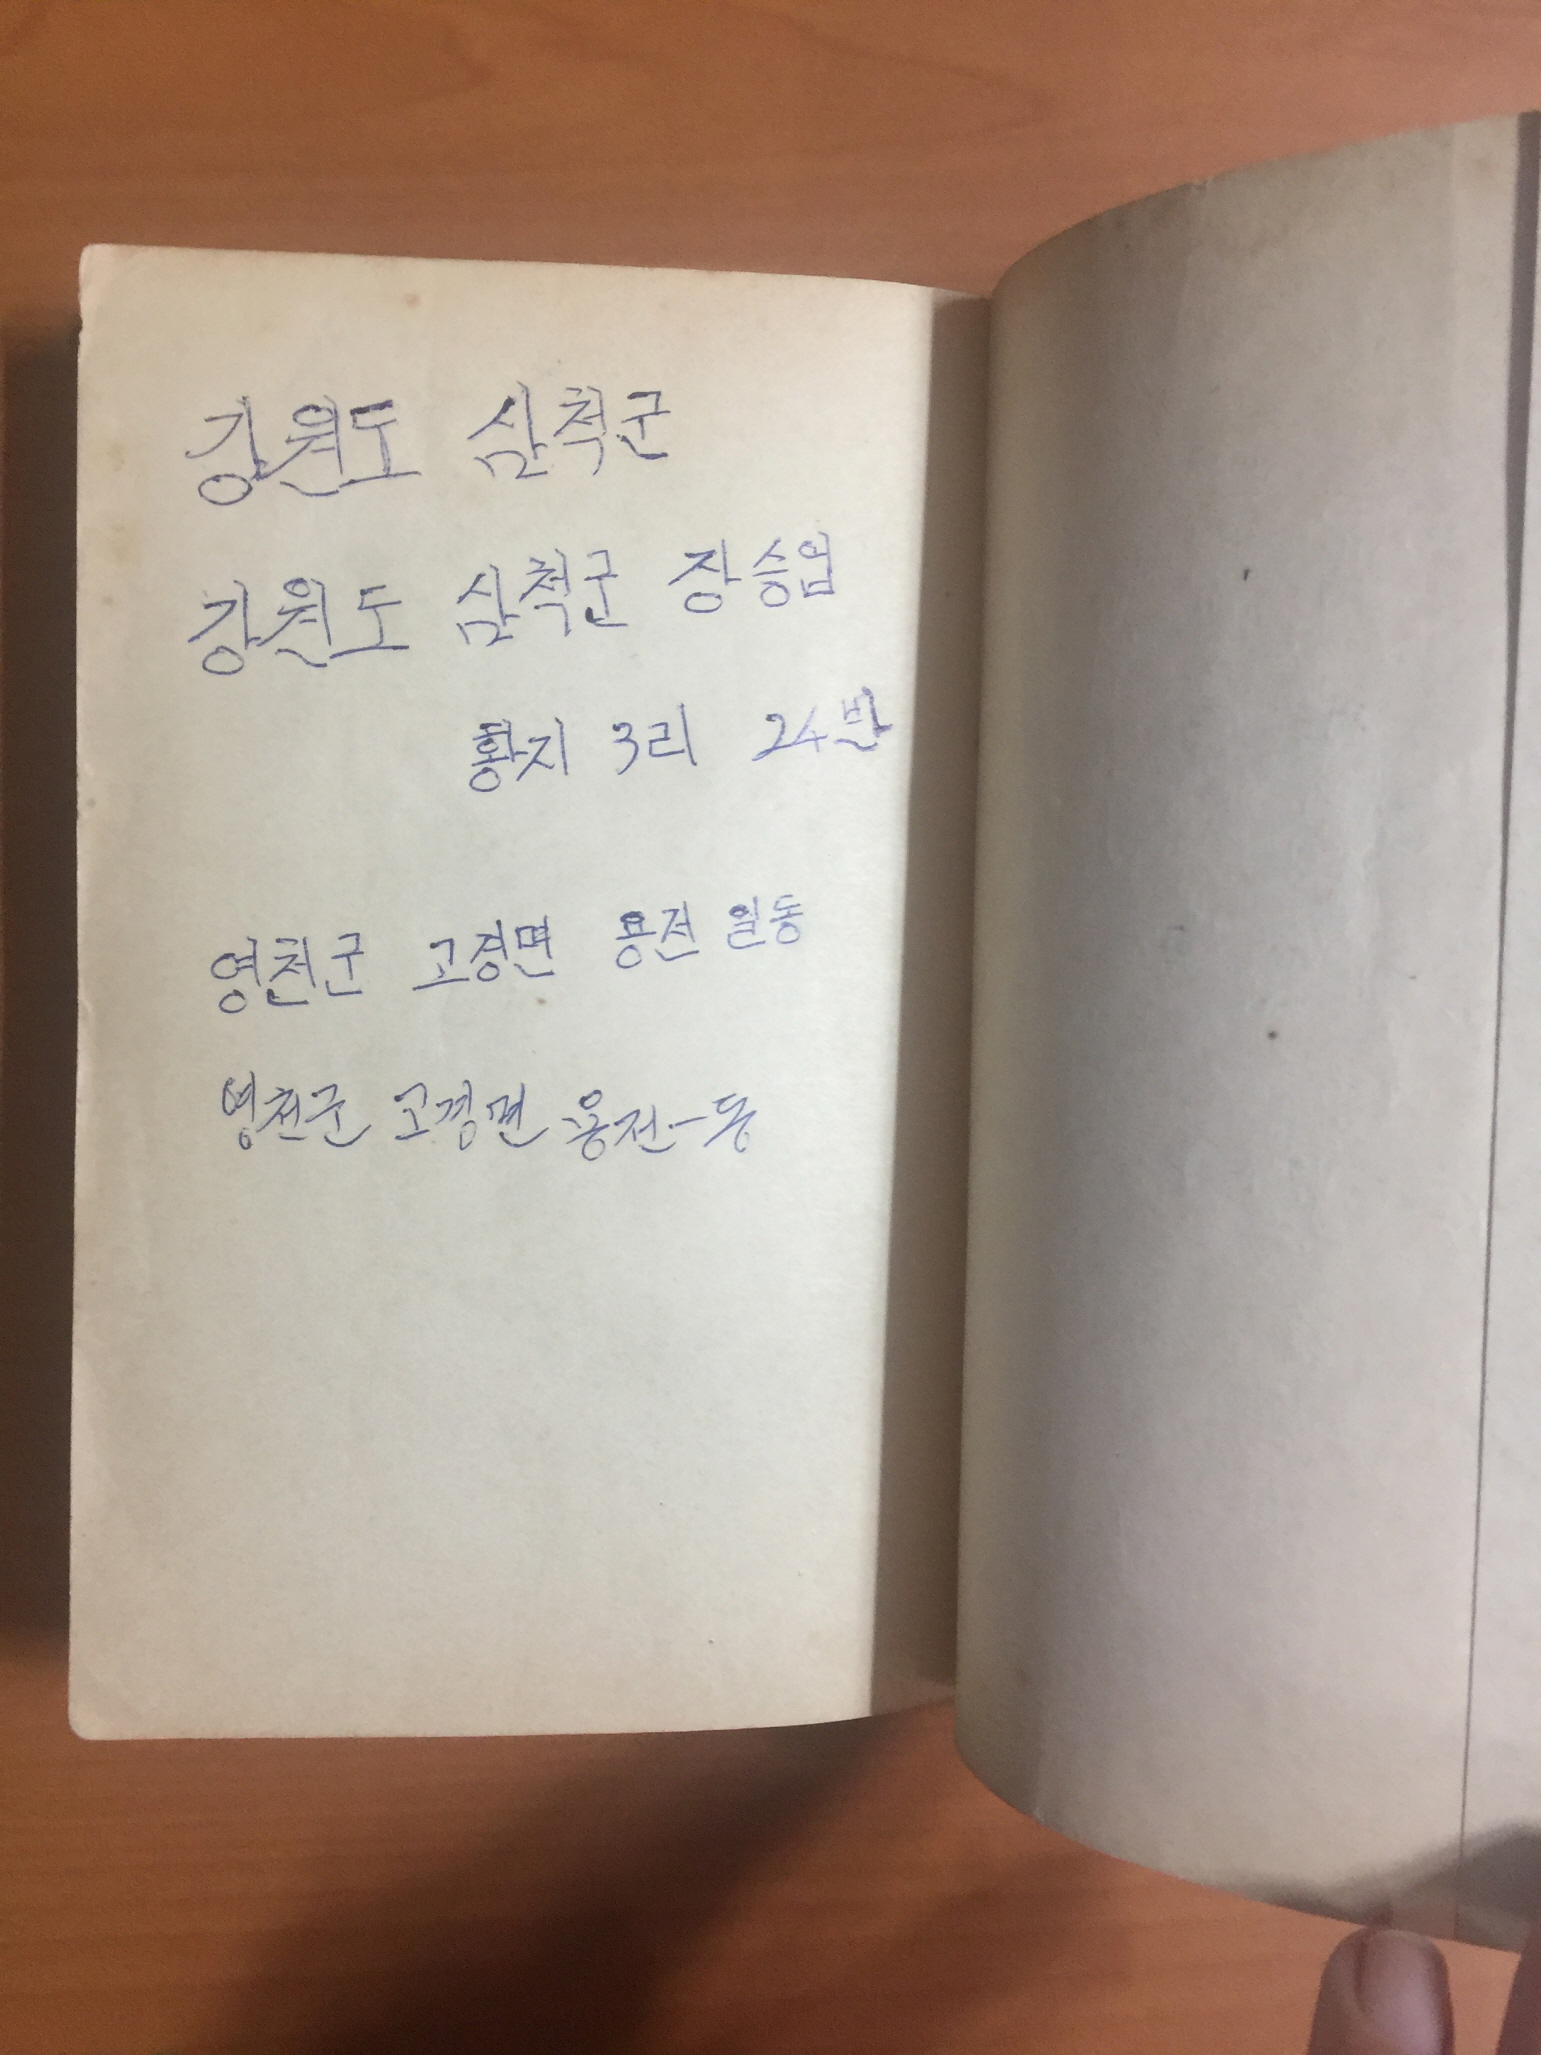 강원도 삼척군
강원도 삼척군 장승업
황지 3리 24반
영천군 고경면 용전 일동
영천군 고경면 용전一동